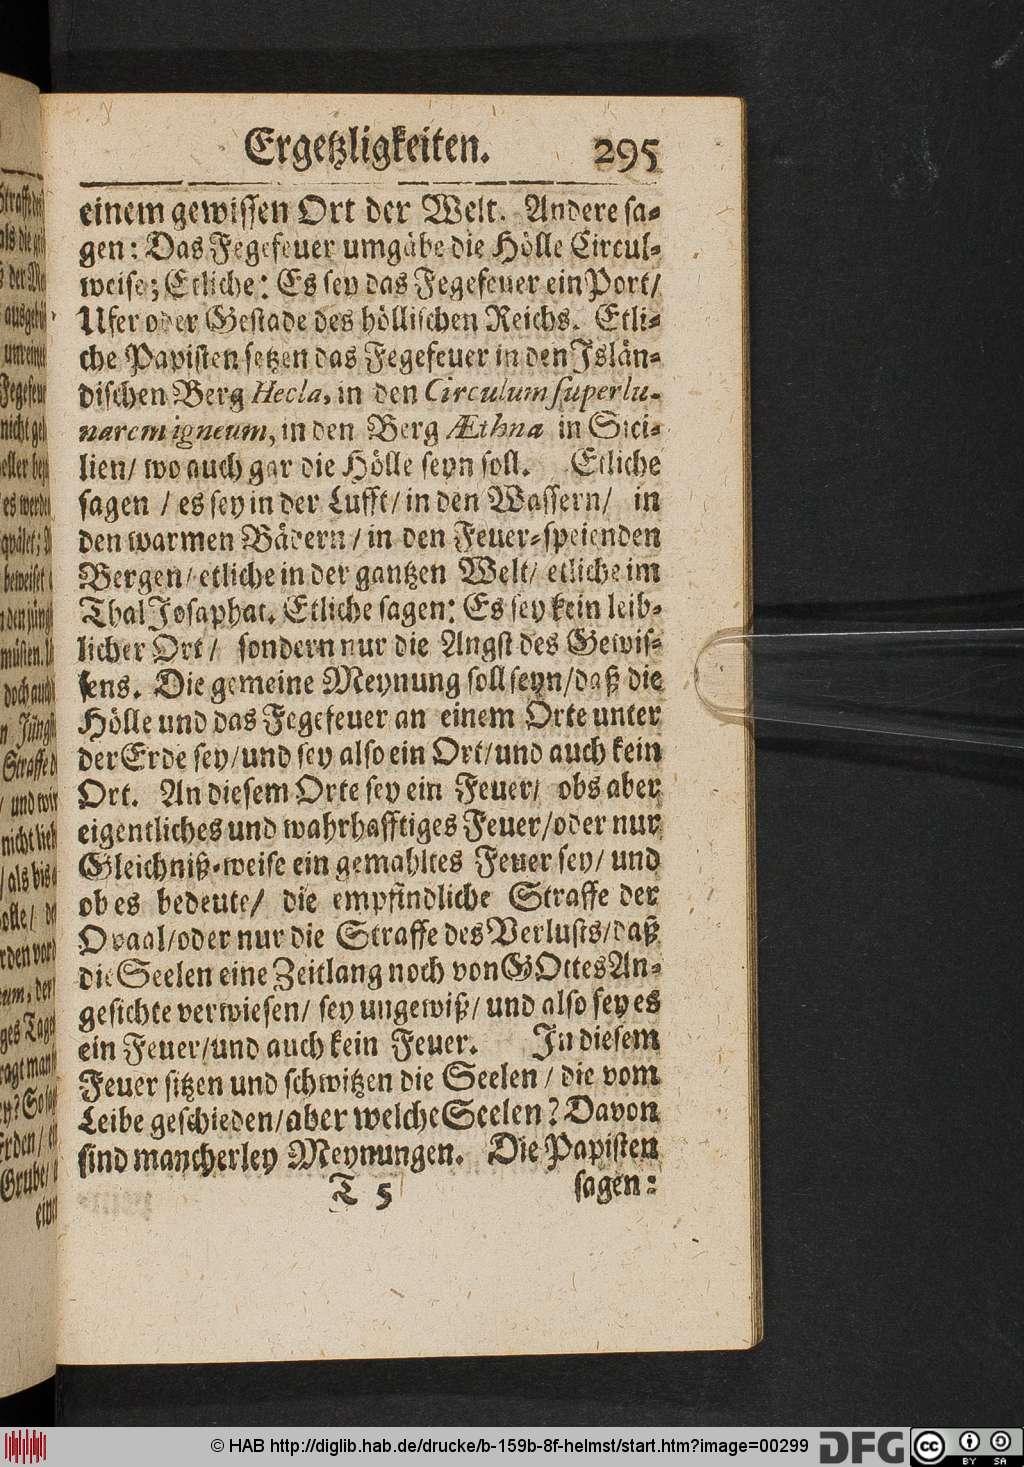 Ergetzligkeiten. 295
einem gewissen Ort der Welt. Andere sa-
gen: Das Fegefeuer umgäbe die Hölle Circul-
weise; Etliche: Es sey das Fegefeuer ein Port/
Ufer oder Gestade des höllischen Reichs. Etli-
che Papisten setzen das Fegefeuer in den Islän-
dischen Berg Hecla, in den Circulum superlu-
narem igneum, in den Berg Æthna in Sici-
lien/ wo auch gar die Hölle seyn soll. Etliche
sagen / es sey in der Lufft/ in den Wassern/ in
den warmen Bädern / in den Feuer-speienden
Bergen/ etliche in der gantzen Welt/ etliche im
Thal Josaphat. Etliche sagen: Es sey kein leib-
licher Ort / sondern nur die Angst des Gewis-
sens. Die gemeine Meynung soll seyn/ daß die
Hölle und das Fegefeuer an einem Orte unter
der Erde sey/ und sey also ein Ort/ und auch kein
Ort. An diesem Orte sey ein Feuer/ obs aber
eigentliches und wahrhafftiges Feuer/ oder nur
Gleichniß-weise ein gemahltes Feuer sey/ und
ob es bedeute/ die empfindliche Straffe der
Qvaal/ oder nur die Straffe des Verlusts/ daß
die Seelen eine Zeitlang noch von GOttes An-
gesichte verwiesen/ sey ungewiß/ und also sey es
ein Feuer/ und auch kein Feuer. In diesem
Feuer sitzen und schwitzen die Seelen / die vom
Leibe geschieden/ aber welche Seelen? Davon
sind mancherley Meynungen. Die Papisten
T 5 sagen:
© HAB http://diglib.hab.de/drucke/b-159b-8f-helmst/start.htm?image=00299
DFG
cc BY SA